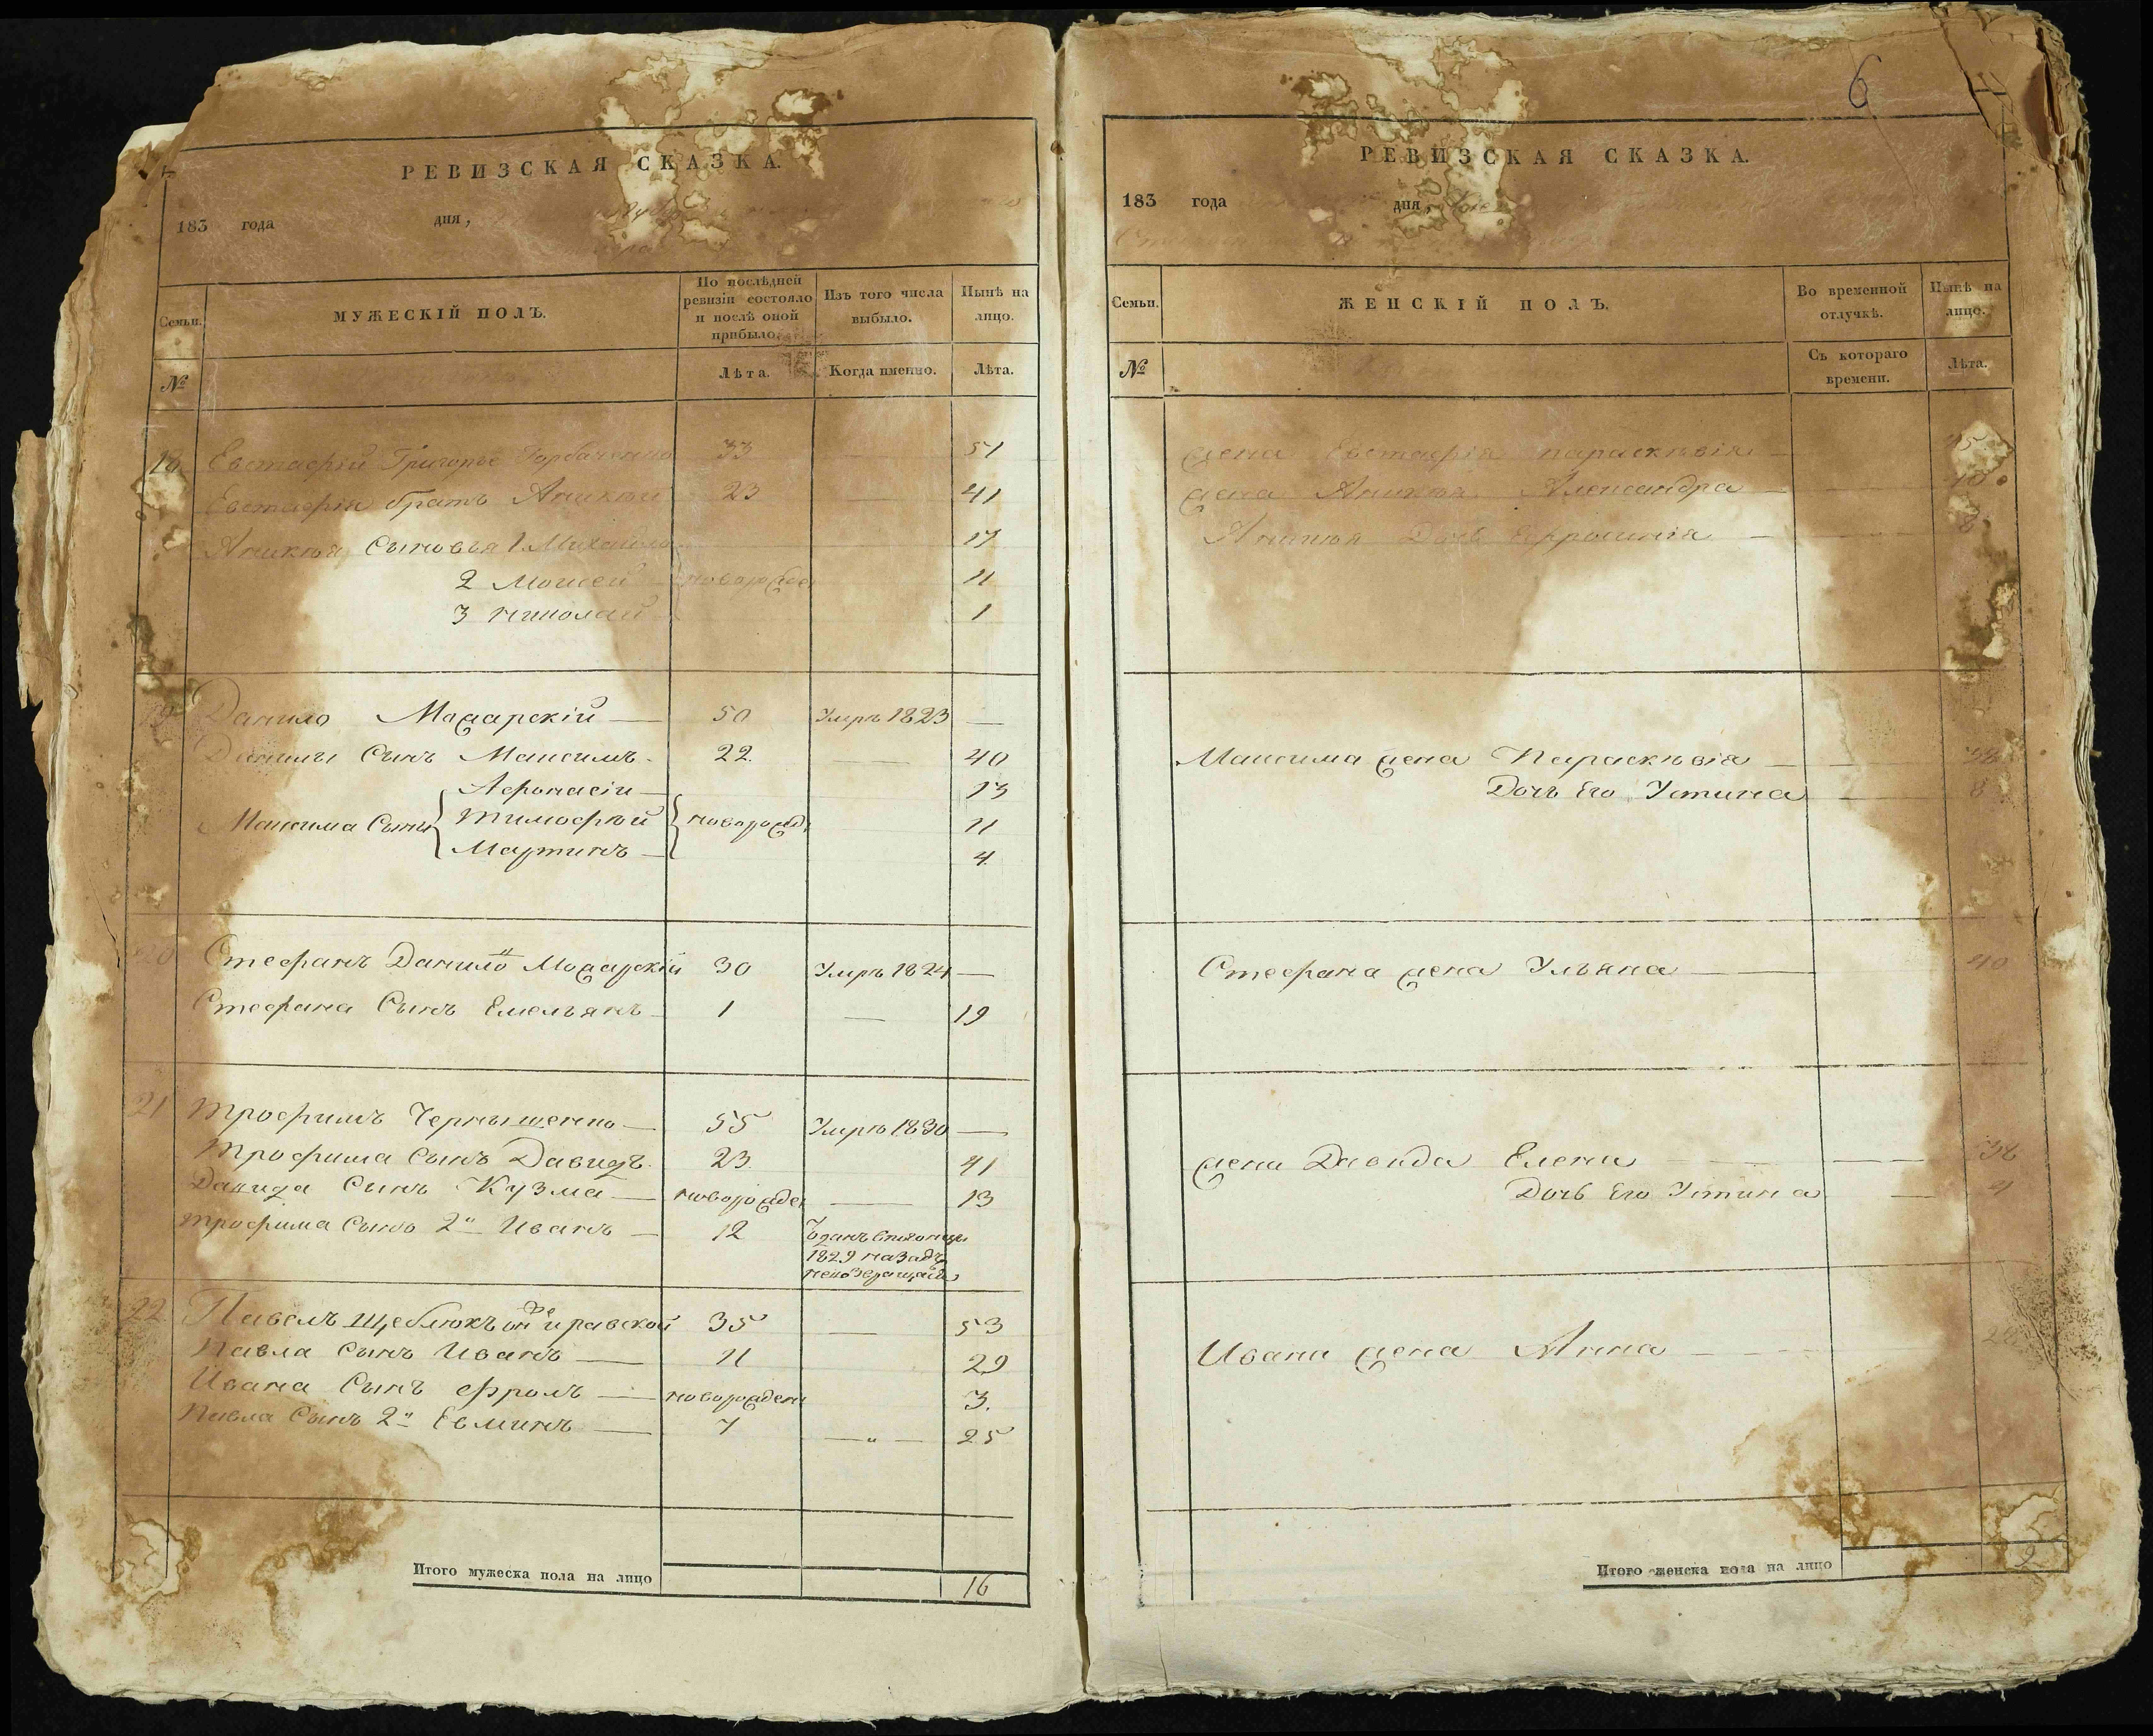 РЕВИЗСКАЯ СКАЗКА.
183 года дня,
Семьи.
МУЖЕСКІЙ ПОЛЪ.
По послѣдней ревизіи состояло и послѣ оной прибыло.
Изъ того числа выбыло.
Нынѣ на лицо.
№
Лѣта.
Когда именно.
Лѣта.
18 Евстафій Григорьев Горбаченко 33 — 51
Евстафія братъ Аникій 23 41
Аникія Сыновья 1 Михайло 17
2 Моисей новорожден 11
3 Николай 1
19 Данило Можарскій — 50 Умръ 1823 —
Данилы Сынъ Максимъ 22. — 40
Афонасій — 13
Максима Сыны Тимофѣй новорожд 11
Мартинъ — 4
20 Стефанъ Данило Можарскій 30 Умръ 1824 —
Стефана Сынъ Емельянъ 1 — 19
21 Трофимъ Чернышенко — 55 Умръ 1830 —
Трофима Сынъ Давидъ 23. 41
Давида Сынъ Кузма — новорожден — 13
Трофима Сынъ 2й Иванъ — 12
1829 назадъ
22 Павелъ Щеблюкъ 35 — 53
Павла Сынъ Иванъ — 11 29
Ивана Сынъ Фролъ — новорожден 3.
Павла Сынъ 2й 7 — „ — 25
Итого мужеска пола на лицо 16
6
РЕВИЗСКАЯ СКАЗКА.
183 года дня,
Семьи.
ЖЕНСКІЙ ПОЛЪ.
Во временной отлучкѣ.
Нынѣ на лицо.
№
Съ котораго времени.
Лѣта.
жена Евстафія параскѣвія —
жена Аникія Александра — 40
Аникія Дочь Ефросинія — 8
Максима жена Параскѣвія —
Дочь Его Устина 8
Стефана жена Ульяна — 40
жена Давида Елена — 38
Дочь Его Устина —
Ивана жена Анна —
Итого женска пола на лицо 9